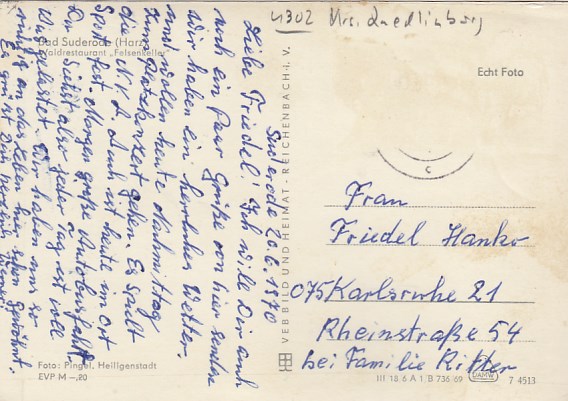 4302 Krs. Quedlinburg
Bad Suderode (Harz)
Waldrestaurant „Felsenkeller"
Echt Foto
Suderode 20.6.1970
Liebe Friedel! Ich will Dir auch
noch ein Paar Grüße von hier senden
Wir haben ein herrliches Wetter.
und wollen heute Nachmittag
zum Platzkonzert gehen. Es spielt
die N.V.A. Auch ist heute im Ort
Sportfest. Morgen große Autobusfahrt.
Du siehst also jeder Tag ist voll
Ausgelastet. Wir haben uns so
richtig an das Leben hier schon gewöhnt.
Es grüßt Dich herzlich
VEB BILD UND HEIMAT · REICHENBACH i. V.
Frau
Friedel Hanko
075 Karlsruhe 21
Rheinstraße 54
bei Familie Ritter
Foto: Pingel, Heiligenstadt
EVP M –,20
III 18 6 A 1 B 736/69
7 4513